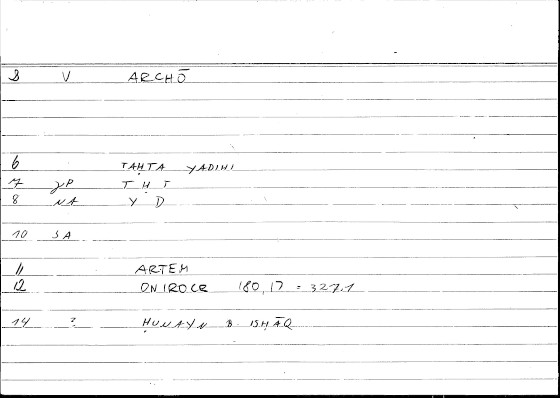 3 V ARCHŌ
6 TAḤTA YADIHI
7 γP T Ḥ T
8 NA Y D
10 SA
11 ARTEM
12 ONIROCR 180,17 = 327.1
14 ? ḤUNAYN B. ISḤĀQ